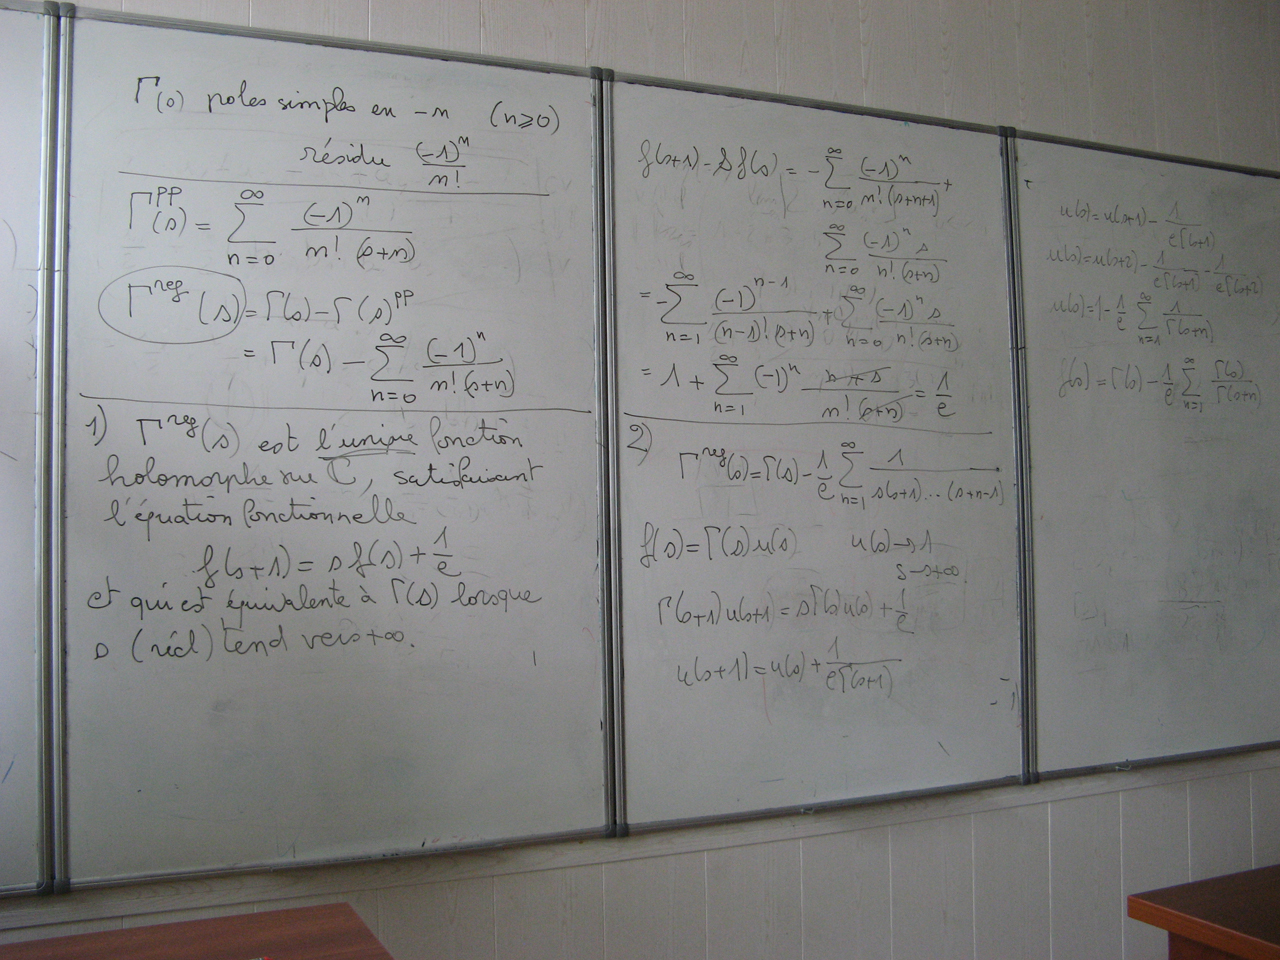 Γ(s) poles simples en -n (n⩾0)
résidu (-1)^n / n!
Γ^pp(s) = ∑_{n=0}^{∞} (-1)^n / (n! (s+n))
Γ^reg(s) = Γ(s) - Γ(s)^pp
= Γ(s) - ∑_{n=0}^{∞} (-1)^n / (n! (s+n))
1) Γ^reg(s) est l'unique fonction
holomorphe sur C, satisfaisant
l'équation fonctionnelle
f(s+1) = s f(s) + 1/e
et qui est équivalente à Γ(s) lorsque
s (réel) tend vers +∞.
f(s+1) - s f(s) = - ∑_{n=0}^{∞} (-1)^n / (n! (s+n+1)) +
∑_{n=0}^{∞} (-1)^n s / (n! (s+n))
= - ∑_{n=1}^{∞} (-1)^{n-1} / ((n-1)! (s+n)) + ∑_{n=0}^{∞} (-1)^n s / (n! (s+n))
= 1 + ∑_{n=1}^{∞} (-1)^n (n+s) / (n! (s+n)) = 1/e
2)
Γ^reg(s) = Γ(s) - 1/e ∑_{n=1}^{∞} 1 / (s(s+1)...(s+n-1))
f(s) = Γ(s) u(s) u(s) → 1
s → +∞.
Γ(s+1) u(s+1) = s Γ(s) u(s) + 1/e
u(s+1) = u(s) + 1 / (e Γ(s+1))
u(s) = u(s+1) - 1 / (e Γ(s+1))
u(s) = u(s+2) - 1 / (e Γ(s+1)) - 1 / (e Γ(s+2))
u(s) = 1 - 1/e ∑_{n=1}^{∞} 1 / Γ(s+n)
f(s) = Γ(s) - 1/e ∑_{n=1}^{∞} Γ(s) / Γ(s+n)